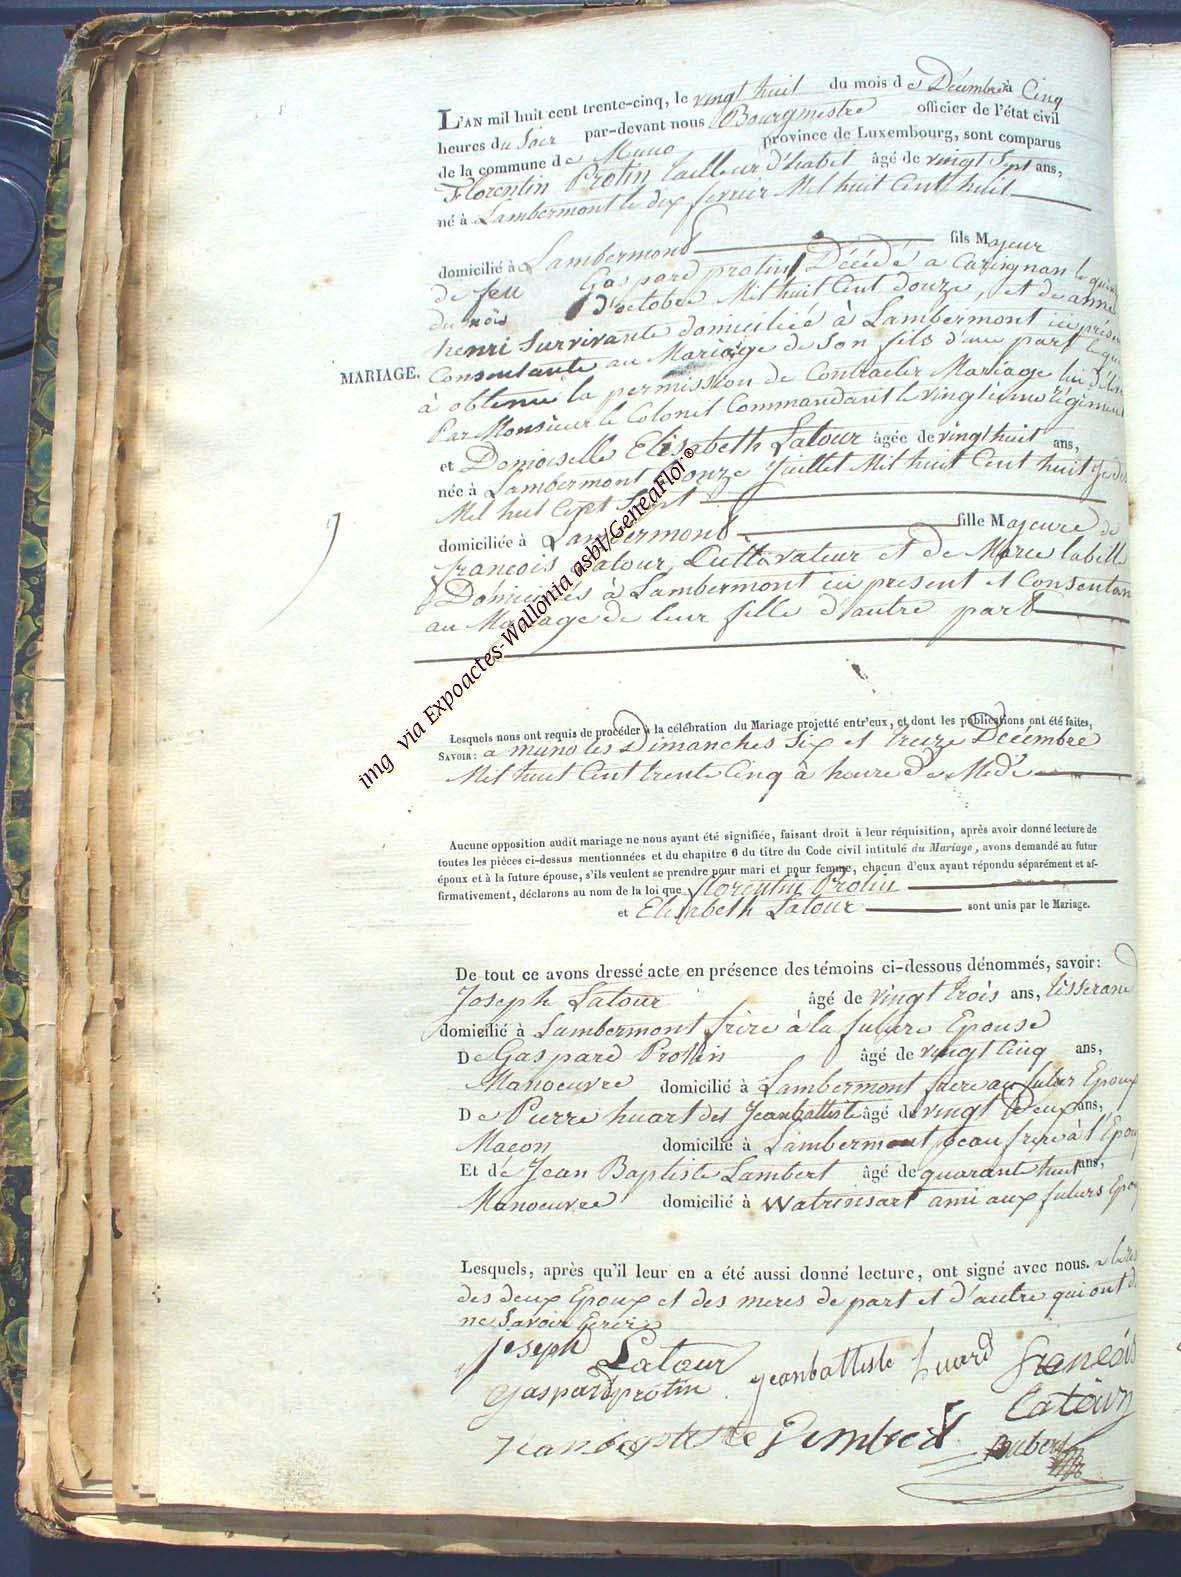 L'AN mil huit cent trente-cinq, le vingt huit du mois de Décembre à Cinq
heures du Soir par-devant nous Bourgmestre officier de l'état civil
de la commune de Muno province de Luxembourg, sont comparus
Florentin Protin tailleur d'habet âgé de vingt Sept ans,
né à Lambermont le dix fevrier Mil huit Cent huit
domicilié à Lambermont fils Majeur
de feu Gaspard protin Décédé a Carignan le
du mois D'octobre Mil huit Cent douze, et de anne
henri Survivante domiciliée à Lambermont ici
Consentante au Mariage de Son fils d'une part
à obtenu la permission de Contracter Mariage lui
Par Monsieur le Colonel Commandant le vingtième régiment
MARIAGE.
et Demoiselle Elisabeth Latour âgée de vingt huit ans,
née à Lambermont onze Juillet Mil huit Cent huit
Mil huit Cept
domiciliée à Lambermont fille Majeure de
francois Latour Cultivateur et de Marie labelle
Domiciliés à Lambermont ici present et Consentan
au Mariage de leur fille d'autre part
Lesquels nous ont requis de procéder à la célébration du Mariage projetté entr'eux, et dont les publications ont été faites,
SAVOIR: a muno les Dimanches Six et treize Décembre
Mil huit Cent trente Cinq à heure de Midi
Aucune opposition audit mariage ne nous ayant été signifiée, faisant droit à leur réquisition, après avoir donné lecture de
toutes les pièces ci-dessus mentionnées et du chapitre 6 du titre du Code civil intitulé du Mariage, avons demandé au futur
époux et à la future épouse, s'ils veulent se prendre pour mari et pour femme, chacun d'eux ayant répondu séparément et af-
firmativement, déclarons au nom de la loi que florentin Protin
et Elisabeth Latour sont unis par le Mariage.
De tout ce avons dressé acte en présence des témoins ci-dessous dénommés, savoir:
Joseph Latour âgé de vingt trois ans, tisserand
domicilié à Lambermont frère à la future Epouse
De Gaspard Protin âgé de vingt Cinq ans,
Manoeuvre domicilié à Lambermont frere au futur Epoux
De Pierre huart des Jeanbattiste âgé de vingt Deux ans,
Macon domicilié à Lambermont beau frere à l'Epou
Et de Jean Baptiste Lambert âgé de quarante huit ans,
Manoeuvre domicilié à Watrinsart ami aux futurs Epou
Lesquels, après qu'il leur en a été aussi donné lecture, ont signé avec nous.
des deux Epoux et des meres de part et d'autre qui ont
ne Savoir Ecrire
joseph Latour
gaspard protin jeanbattiste huard francois
Latour
jean baptiste Lambert
img via Expoactes-Wallonia asbl/GeneaFloi ©